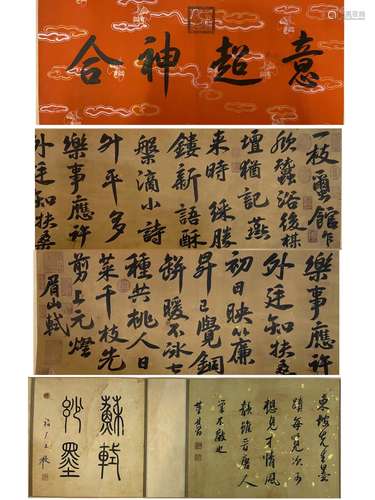 意超神合
一枝璽館乍
欣蠶浴後禖
壇猶記燕
來時綵勝
鏤新語酥
盤滴小詩
升平多
樂事應許
外廷知扶桑
樂事應許
外廷知扶桑
初日映簾
昇已覺銅
缾暖不冰七
種共挑人日
菜千枝先
剪上元燈
眉山軾
東坡先生墨
蹟每覽次
想見才情風
韻誰言唐人
當不敵也
董其昌
蘇軾
妙墨